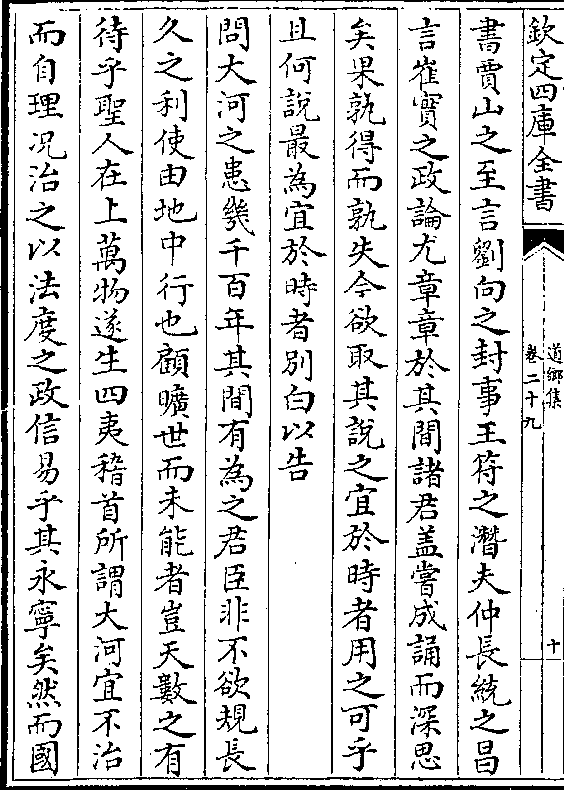 欽定四庫全書
道鄉集
卷二十九
十
書賈山之至言劉向之封事王符之潛夫仲長統之昌
言崔寔之政論尤章章於其間諸君盖嘗成誦而深思
矣果孰得而孰失今欲取其說之宜於時者用之可乎
且何說最為宜於時者別白以告
問大河之患幾千百年其間有為之君臣非不欲規長
久之利使由地中行也顧曠世而未能者豈天數之有
待乎聖人在上萬物遂生四夷稽首所謂大河宜不治
而自理况治之以法度之政信易乎其永寧矣然而國